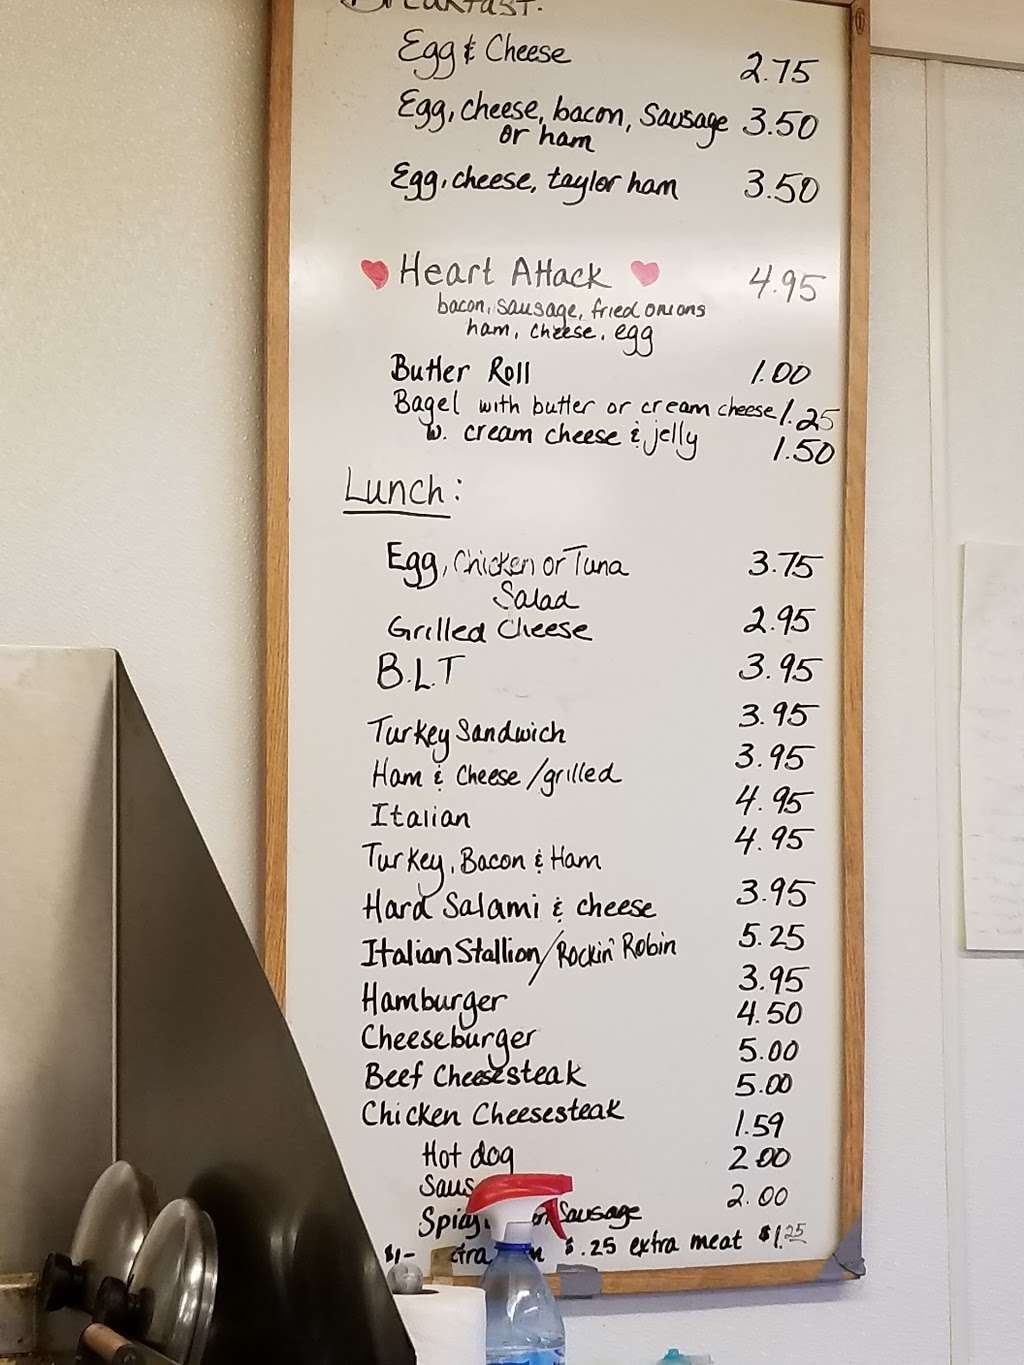 Breakfast:
Egg & Cheese 2.75
Egg, cheese, bacon, Sausage 3.50
or ham
Egg, cheese, taylor ham 3.50
Heart Attack 4.95
bacon, sausage, fried onions
ham, cheese, egg
Butter Roll 1.00
Bagel with butter or cream cheese 1.25
w. cream cheese & jelly 1.50
Lunch:
Egg, Chicken or Tuna 3.75
Salad
Grilled Cheese 2.95
B.L.T 3.95
Turkey Sandwich 3.95
Ham & Cheese/grilled 3.95
Italian 4.95
Turkey, Bacon & Ham 4.95
Hard Salami & cheese 3.95
Italian Stallion/Rockin' Robin 5.25
Hamburger 3.95
Cheeseburger 4.50
Beef Cheesesteak 5.00
Chicken Cheesesteak 5.00
Hot dog 1.59
Saus 2.00
Sausage 2.00
$1- $.25 extra meat $1.25